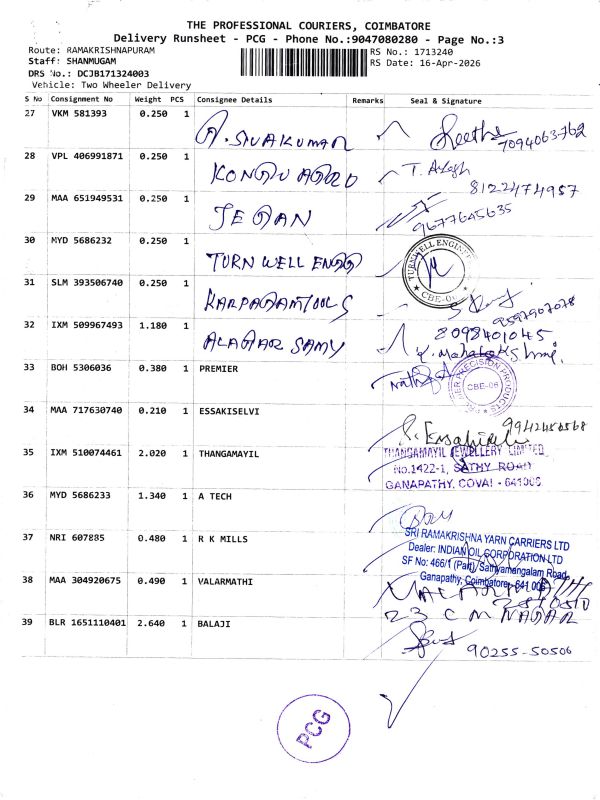 THE PROFESSIONAL COURIERS, COIMBATORE
Delivery Runsheet - PCG - Phone No.:9047080280 - Page No.:3
Route: RAMAKRISHNAPURAM
RS No.: 1713240
Staff: SHANMUGAM
RS Date: 16-Apr-2026
DRS No.: DCJB171324003
Vehicle: Two Wheeler Delivery
S No Consignment No Weight PCS Consignee Details Remarks Seal & Signature
27 VKM 581393 0.250 1 A. SIVAKUMAR Reetha 7094063762
28 VPL 406991871 0.250 1 KONGU AGRO T. Akash
8122474957
29 MAA 651949531 0.250 1 JEGAN 9677645635
30 MYD 5686232 0.250 1 TURN WELL ENGG TURNWELL ENGINE CBE-06
31 SLM 393506740 0.250 1 KARPAGAMTOOLS 9597907078
32 IXM 509967493 1.180 1 ALAGAR SAMY 8098401045
33 BOH 5306036 0.380 1 PREMIER PRECISION PRODUCTS CBE-06
34 MAA 717630740 0.210 1 ESSAKISELVI 9942450568
S. Essakiselvi
35 IXM 510074461 2.020 1 THANGAMAYIL THANGAMAYIL JEWELLERY LIMITED
No.1422-1, SATHY ROAD
GANAPATHY, COVAI - 641006
36 MYD 5686233 1.340 1 A TECH
37 NRI 607885 0.480 1 R K MILLS SRI RAMAKRISHNA YARN CARRIERS LTD
Dealer: INDIAN OIL CORPORATION LTD
SF No: 466/1 (Part) Sathyamangalam Road,
Ganapathy, Coimbatore - 641 006
38 MAA 304920675 0.490 1 VALARMATHI VALARMATHI
23 C M NAGAR
39 BLR 1651110401 2.640 1 BALAJI 90255-50506
PCG